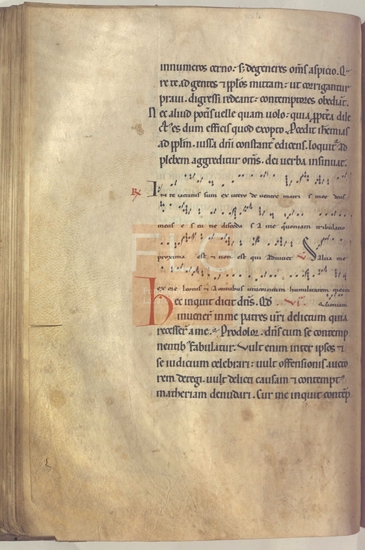 innumeros cerno: s; degeneres oms aspicio. Qua
re te ad gentes & ipsos mittam: ut corrigantur
praui. digressi redeant: contemptores obediant.
Nec aliud potes uelle quam uolo: quia
es dum efficis quod exopto.
iussa dni constanter edicens. loquit ad
plebem aggreditur oms. dei uerba insinuat.
In te iactatus sum ex utero de uentre matris
meus es tu ne discedas a me quoniam tribulatio
proxima est & non est qui adiuuet Salua me
ex ore leonis & a cornibus unicornium humilitatem
Hec inquit dicit dns. Qd
inuener in me patres uri delictum quia
recesser a me. Prodolor. dns cum se contemp
nentib fabulatur. Vult enim inter ipsos &
se iudicium celebrari: uult offensionis aucto
rem detegi. uult delicti causam & contempt
matheriam denudari. Cur me inquit contep